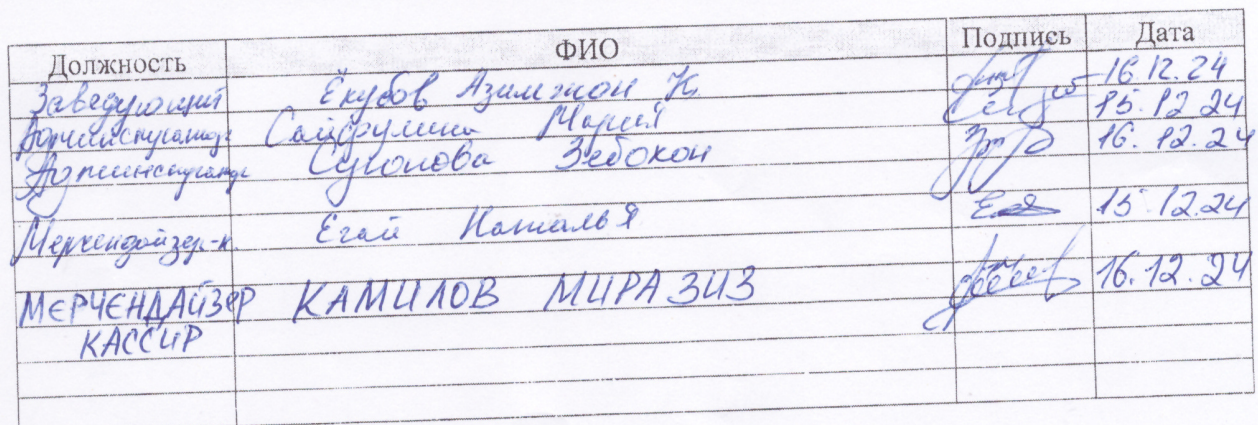 Должность ФИО Подпись Дата
Заведующий Ёкубов Азимжон К. 16.12.24
Администратор Сайфулина Мария 15.12.24
Администратор Зебохон 16.12.24
Мерчендайзер-к. Егай Наталья 15.12.24
МЕРЧЕНДАЙЗЕР КАМИЛОВ МИРАЗИЗ 16.12.24
КАССИР